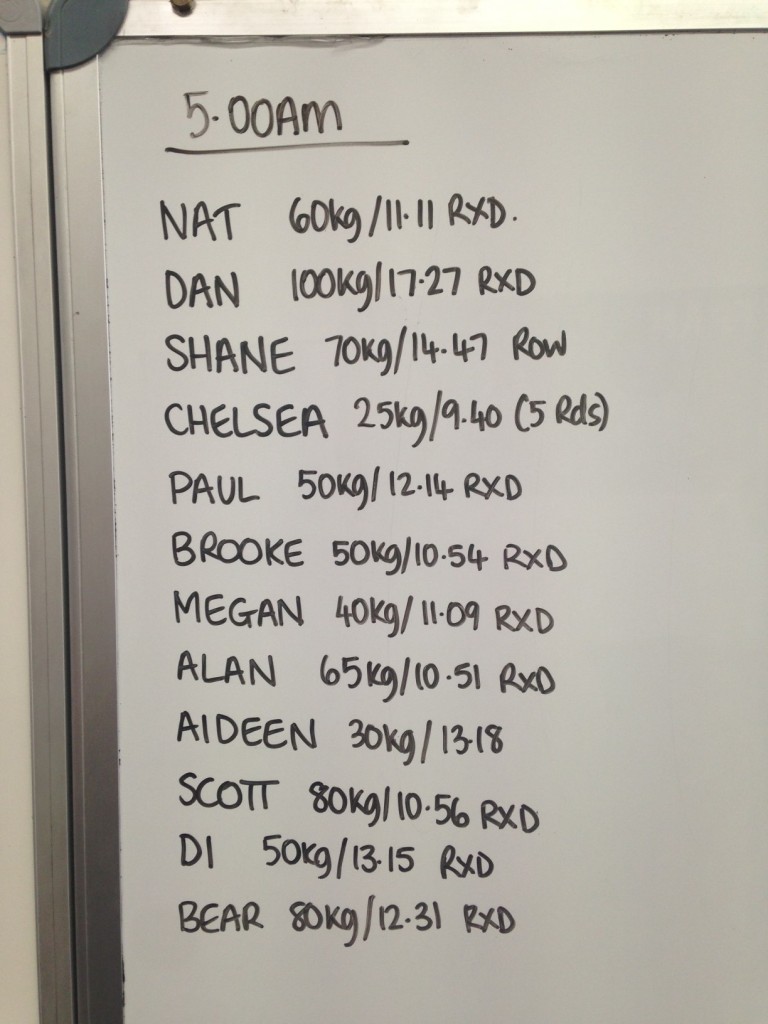 5.00AM
NAT 60kg/11.11 RXD.
DAN 100kg/17.27 RXD
SHANE 70kg/14.47 ROW
CHELSEA 25kg/9.40 (5 Rds)
PAUL 50kg/12.14 RXD
BROOKE 50kg/10.54 RXD
MEGAN 40kg/11.09 RXD
ALAN 65kg/10.51 RXD
AIDEEN 30kg/13.18
SCOTT 80kg/10.56 RXD
DI 50kg/13.15 RXD
BEAR 80kg/12.31 RXD